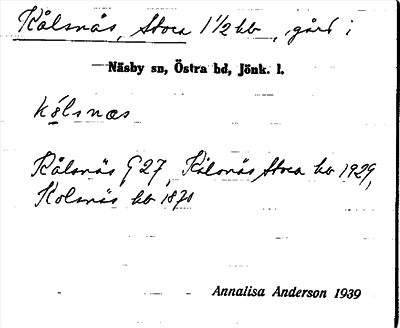 Kålsnäs, Stora 1 1/2 hb, gård i
Näsby sn, Östra hd, Jönk. l.
kålsnæs
Kålsnäs G 27, Kålsnäs Stora kb 1929,
Kolsnäs kb 1870
Annalisa Anderson 1939